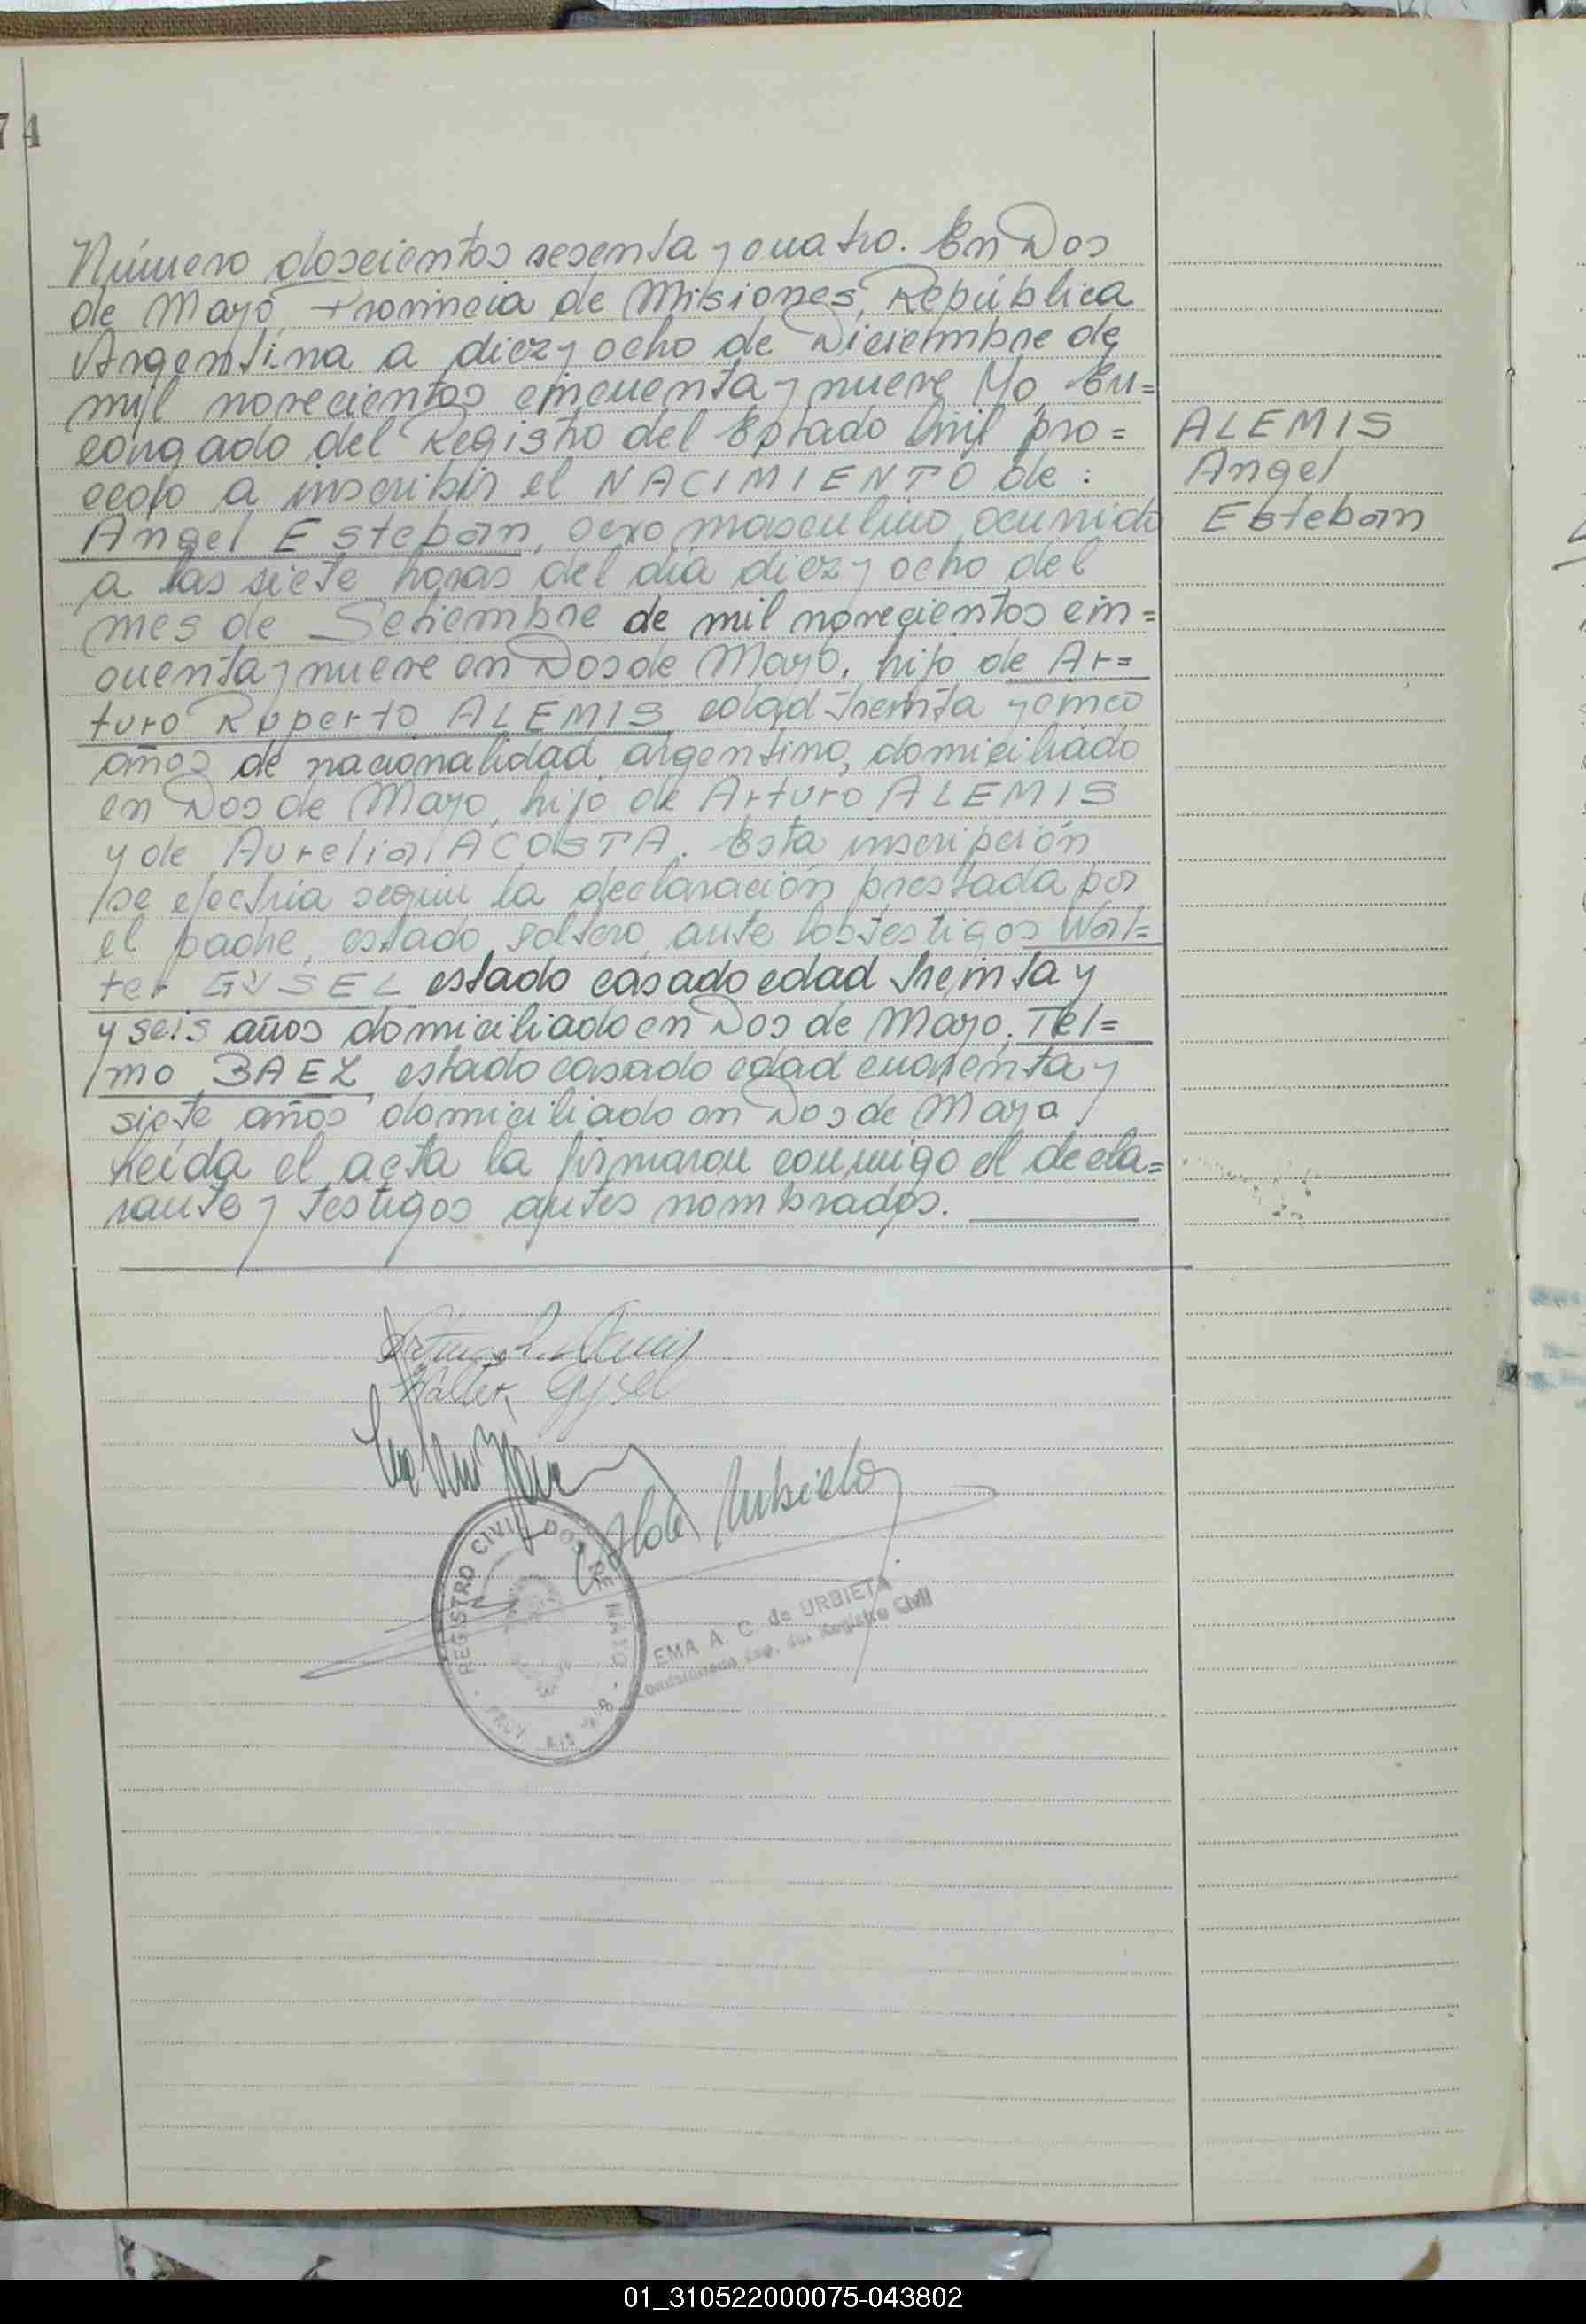 74
Número doscientos sesenta y cuatro. En Dos
de Mayo, Provincia de Misiones, República
Argentina a diez y ocho de Diciembre de
mil novecientos cincuenta y nueve Yo En=
cargado del Registro del Estado Civil pro=
cedo a inscribir el NACIMIENTO de:
Angel Esteban, sexo masculino ocurrido
a las siete horas del día diez y ocho del
mes de Setiembre de mil novecientos cin=
cuenta y nueve en Dos de Mayo, hijo de Ar=
turo Ruperto ALEMIS edad treinta y cinco
años de nacionalidad argentino, domiciliado
en Dos de Mayo, hijo de Arturo ALEMIS
y de Aurelia ACOSTA. Esta inscripción
se efectúa según la declaración prestada por
el padre, estado soltero, ante los testigos Wal=
ter GYSEL estado casado edad treinta y
y seis años domiciliado en Dos de Mayo. Tel=
mo BAEZ, estado casado edad cuarenta y
siete años domiciliado en Dos de Mayo.
Leída el acta la firmaron conmigo el decla=
rante y testigos antes nombrados.
ALEMIS
Angel
Esteban
Walter Gysel
Urbieta
REGISTRO CIVIL DOS DE MAYO
PROV. MIS
EMA A. C. de URBIETA
Enc. del Registro Civil
01_310522000075-043802